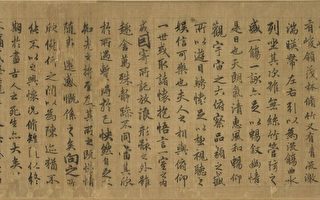 有峻領茂林脩竹又有清流激
湍暎帶左右引以為流觴曲水
列坐其次雖無絲竹管弦之
盛一觴一詠亦足以暢敘幽情
是日也天朗氣清惠風和暢仰
觀宇宙之大俯察品類之盛
所以遊目騁懷足以極視聽之
娛信可樂也夫人之相與俯仰
一世或取諸懷抱悟言一室之內
或因寄所託放浪形骸之外雖
趣舍萬殊靜躁不同當其欣
於所遇暫得於己快然自足不
知老之將至及其所之既惓情
隨事遷感慨係之矣向之所
欣俛仰之閒以為陳迹猶不
能不以之興懷況脩短隨化終
期於盡古人云死生亦大矣豈